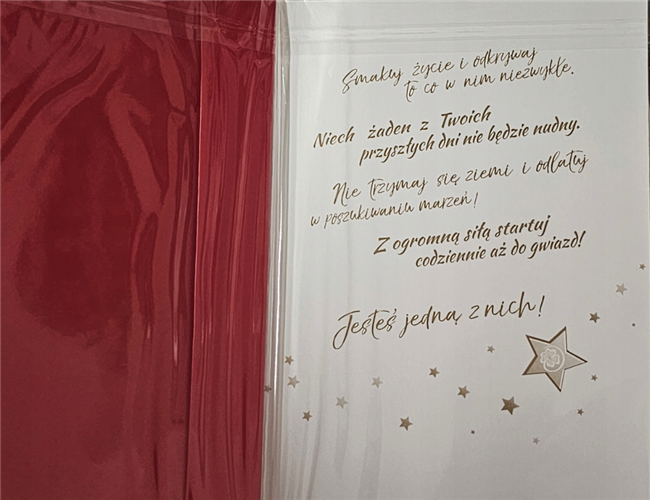 Smakuj życie i odkrywaj
to co w nim niezwykłe.
Niech żaden z Twoich
przyszłych dni nie będzie nudny.
Nie trzymaj się ziemi i odlatuj
w poszukiwaniu marzeń!
Z ogromną siłą startuj
codziennie aż do gwiazd!
Jesteś jedną z nich!